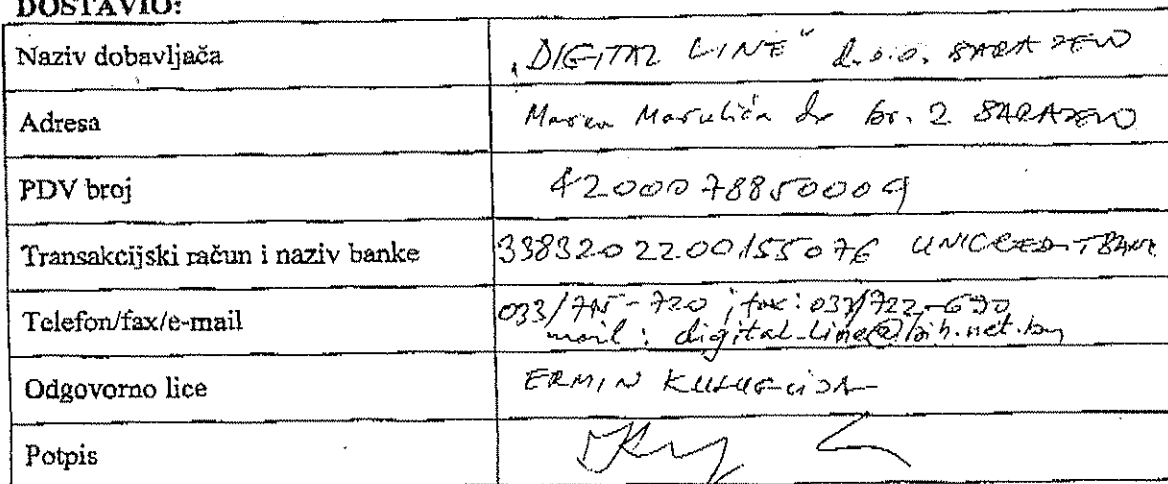 DOSTAVIO:
Naziv dobavljača „DIGITAL LINE" d.o.o. SARAJEVO
Adresa Marka Marulića br. 2 SARAJEVO
PDV broj 4200078850009
Transakcijski račun i naziv banke 3383202200155076 UNICREDIT BANK
Telefon/fax/e-mail 033/715-720; fax: 033/722-690
mail: digital-line@bih.net.ba
Odgovorno lice ERMIN
Potpis